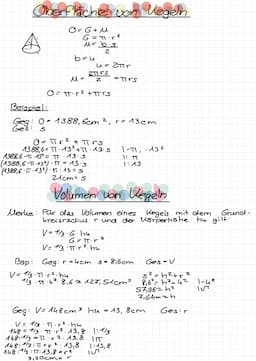 Oberfläche von Kegeln
O = G + M
G = π · r²
M = b·s / 2
b = u
u = 2πr
M = 2πrs / 2 = πrs
O = π · r² + πrs
Beispiel:
Geg: O = 1388,6cm², r = 13cm
Ges: s
O = πr² + πrs
1388,6 = π · 13² + π · 13 · s |-π · 13²
1388,6 - π · 13² = π · 13 · s |: π
(1388,6 - π · 13²) : π = 13 · s |: 13
(1388,6 - π · 13²) : π : 13 = s
21cm = s
Volumen von Kegeln
Merke: Für das Volumen eines Kegels mit dem Grund-
kreisradius r und der Körperhöhe hk gilt:
V = 1/3 · G · hk
G = π · r²
V = 1/3 · π · r² · hk
Bsp: Geg: r = 4cm s = 8,6cm Ges = V
V = 1/3 · π · r² · hk
s² = h² + r²
8,6² = h² + 4² |-4²
57,96 = h² |√
Geg: V = 148cm³ hk = 13,8cm Ges: r
V = 1/3 · π · r² · hk
148 = 1/3 · π · r² · 13,8 |: 1/3
148 : 1/3 = π · r² · 13,8 |: π
148 : 1/3 : π = r² · 13,8 |: 13,8
148 : 1/3 : π : 13,8 = r² |√